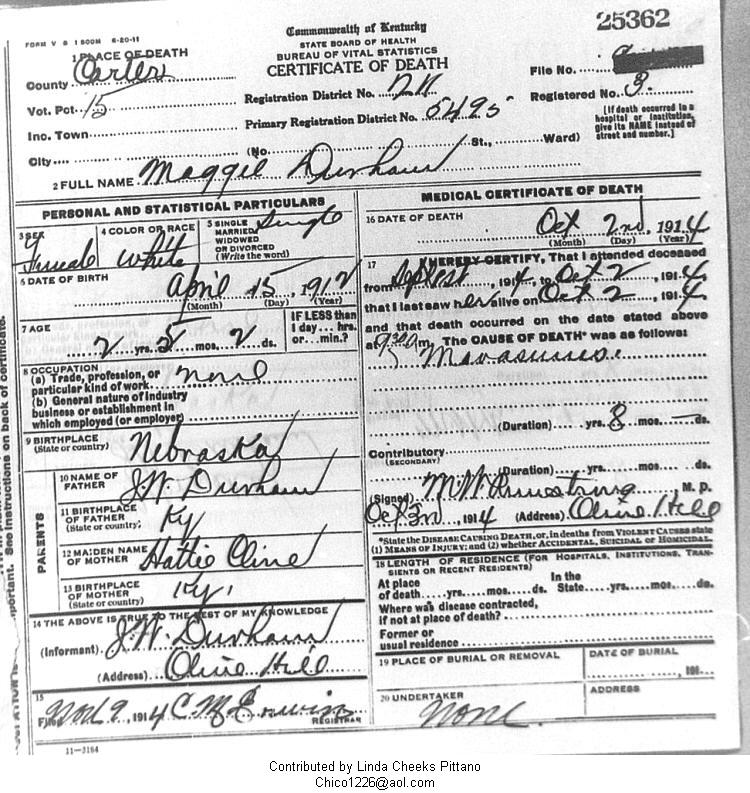 25362
FORM V S 1 500M 6-20-11
Commonwealth of Kentucky
STATE BOARD OF HEALTH
BUREAU OF VITAL STATISTICS
CERTIFICATE OF DEATH
1 PLACE OF DEATH
County Carter
Vot. Pct. 15
Inc. Town
City
Registration District No.
Primary Registration District No. 5495
(No. St., Ward)
File No.
Registered No. 3.
[If death occurred in a hospital or institution, give its NAME instead of street and number.]
2 FULL NAME Maggie Durham
PERSONAL AND STATISTICAL PARTICULARS
3 SEX Female
4 COLOR OR RACE White
5 SINGLE MARRIED WIDOWED OR DIVORCED (Write the word) Single
6 DATE OF BIRTH April 15, 1912
(Month) (Day) (Year)
7 AGE 2 yrs. 5 mos. 2 ds.
IF LESS than 1 day... hrs. or... min.?
8 OCCUPATION
(a) Trade, profession, or particular kind of work none
(b) General nature of industry business or establishment in which employed (or employer)
9 BIRTHPLACE (State or country) Nebraska
PARENTS
10 NAME OF FATHER J.W. Durham
11 BIRTHPLACE OF FATHER (State or country) Ky
12 MAIDEN NAME OF MOTHER Hattie Cline
13 BIRTHPLACE OF MOTHER (State or country) Ky.
14 THE ABOVE IS TRUE TO THE BEST OF MY KNOWLEDGE
(Informant) J.W. Durham
(Address) Olive Hill
15
Filed Nov 9, 1914 C M Erwin
REGISTRAR
11-3184
MEDICAL CERTIFICATE OF DEATH
16 DATE OF DEATH Oct 2nd, 1914
(Month) (Day) (Year)
17 I HEREBY CERTIFY, That I attended deceased
from Sept 1914, to Oct 2, 1914,
that I last saw her alive on Oct 2, 1914,
and that death occurred on the date stated above
at m. The CAUSE OF DEATH* was as follows:
Marasmus.
(Duration) yrs. 8 mos. ds.
Contributory
(SECONDARY)
(Duration) yrs. mos. ds.
(Signed) M.W. Armstrong M. D.
Oct 3rd, 1914 (Address) Olive Hill
*State the DISEASE CAUSING DEATH, or, in deaths from VIOLENT CAUSES state (1) MEANS OF INJURY; and (2) whether ACCIDENTAL, SUICIDAL or HOMICIDAL.
18 LENGTH OF RESIDENCE (FOR HOSPITALS, INSTITUTIONS, TRANSIENTS OR RECENT RESIDENTS)
At place of death yrs. mos. ds. In the State yrs. mos. ds.
Where was disease contracted, if not at place of death?
Former or usual residence
19 PLACE OF BURIAL OR REMOVAL
DATE OF BURIAL
, 191
20 UNDERTAKER
None.
ADDRESS
portant. See instructions on back of certificate.
Contributed by Linda Cheeks Pittano
Chico1226@aol.com